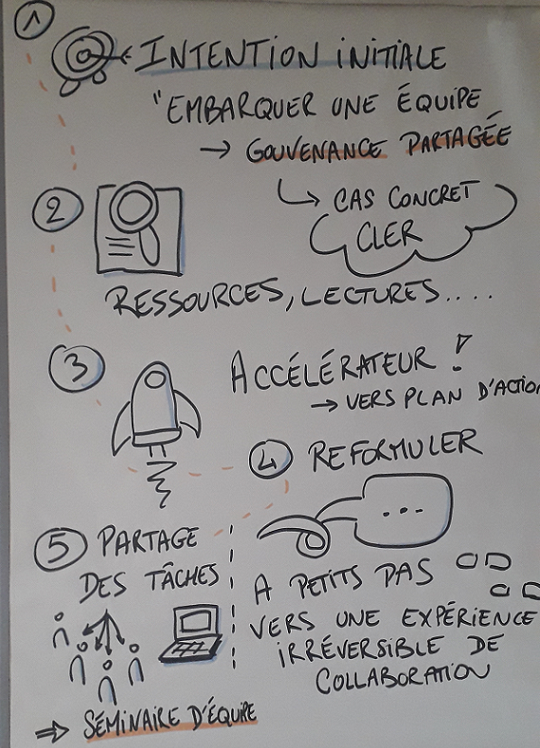 1
INTENTION INITIALE
"EMBARQUER UNE ÉQUIPE
→ GOUVENANCE PARTAGÉE
↳ CAS CONCRET
CLER
2
RESSOURCES, LECTURES....
3
ACCÉLÉRATEUR !
→ VERS PLAN D'ACTION
4 REFORMULER
...
A PETITS PAS
VERS UNE EXPÉRIENCE
IRRÉVERSIBLE DE
COLLABORATION
5 PARTAGE
DES TÂCHES
⇒ SÉMINAIRE D'ÉQUIPE